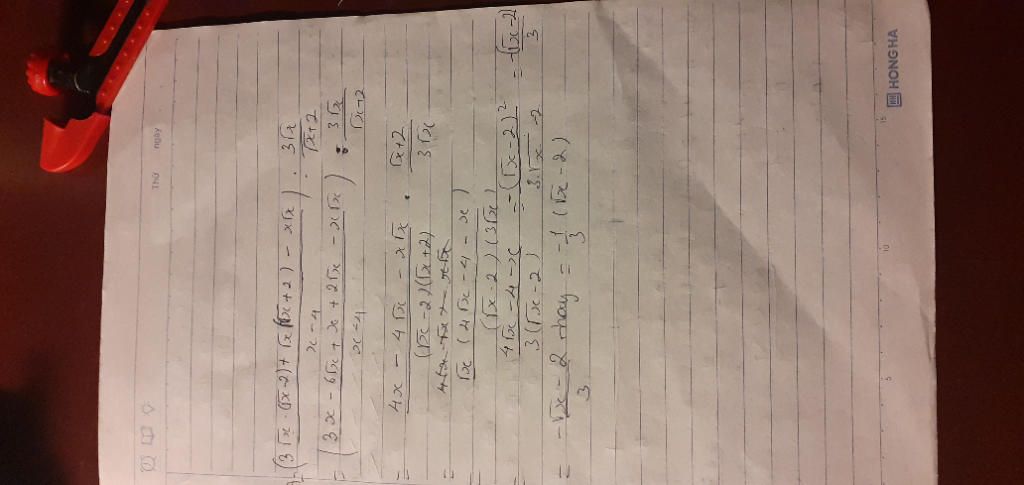 Thứ ngày
(3√x·(√x-2)+√x(√x+2) - x√x / x-4) : 3√x / √x+2
= (3x - 6√x + x + 2√x - x√x / x-4) : 3√x / √x+2
= 4x - 4√x - x√x / (√x-2)(√x+2) · √x+2 / 3√x
= √x (4√x - 4 - x) / (√x-2)(3√x)
= 4√x - 4 - x / 3(√x-2) = -(√x-2)² / 3·√x-2 = -(√x-2) / 3
= -√x-2 / 3 hay = -1/3 (√x-2)
5 10 15
HONG HA